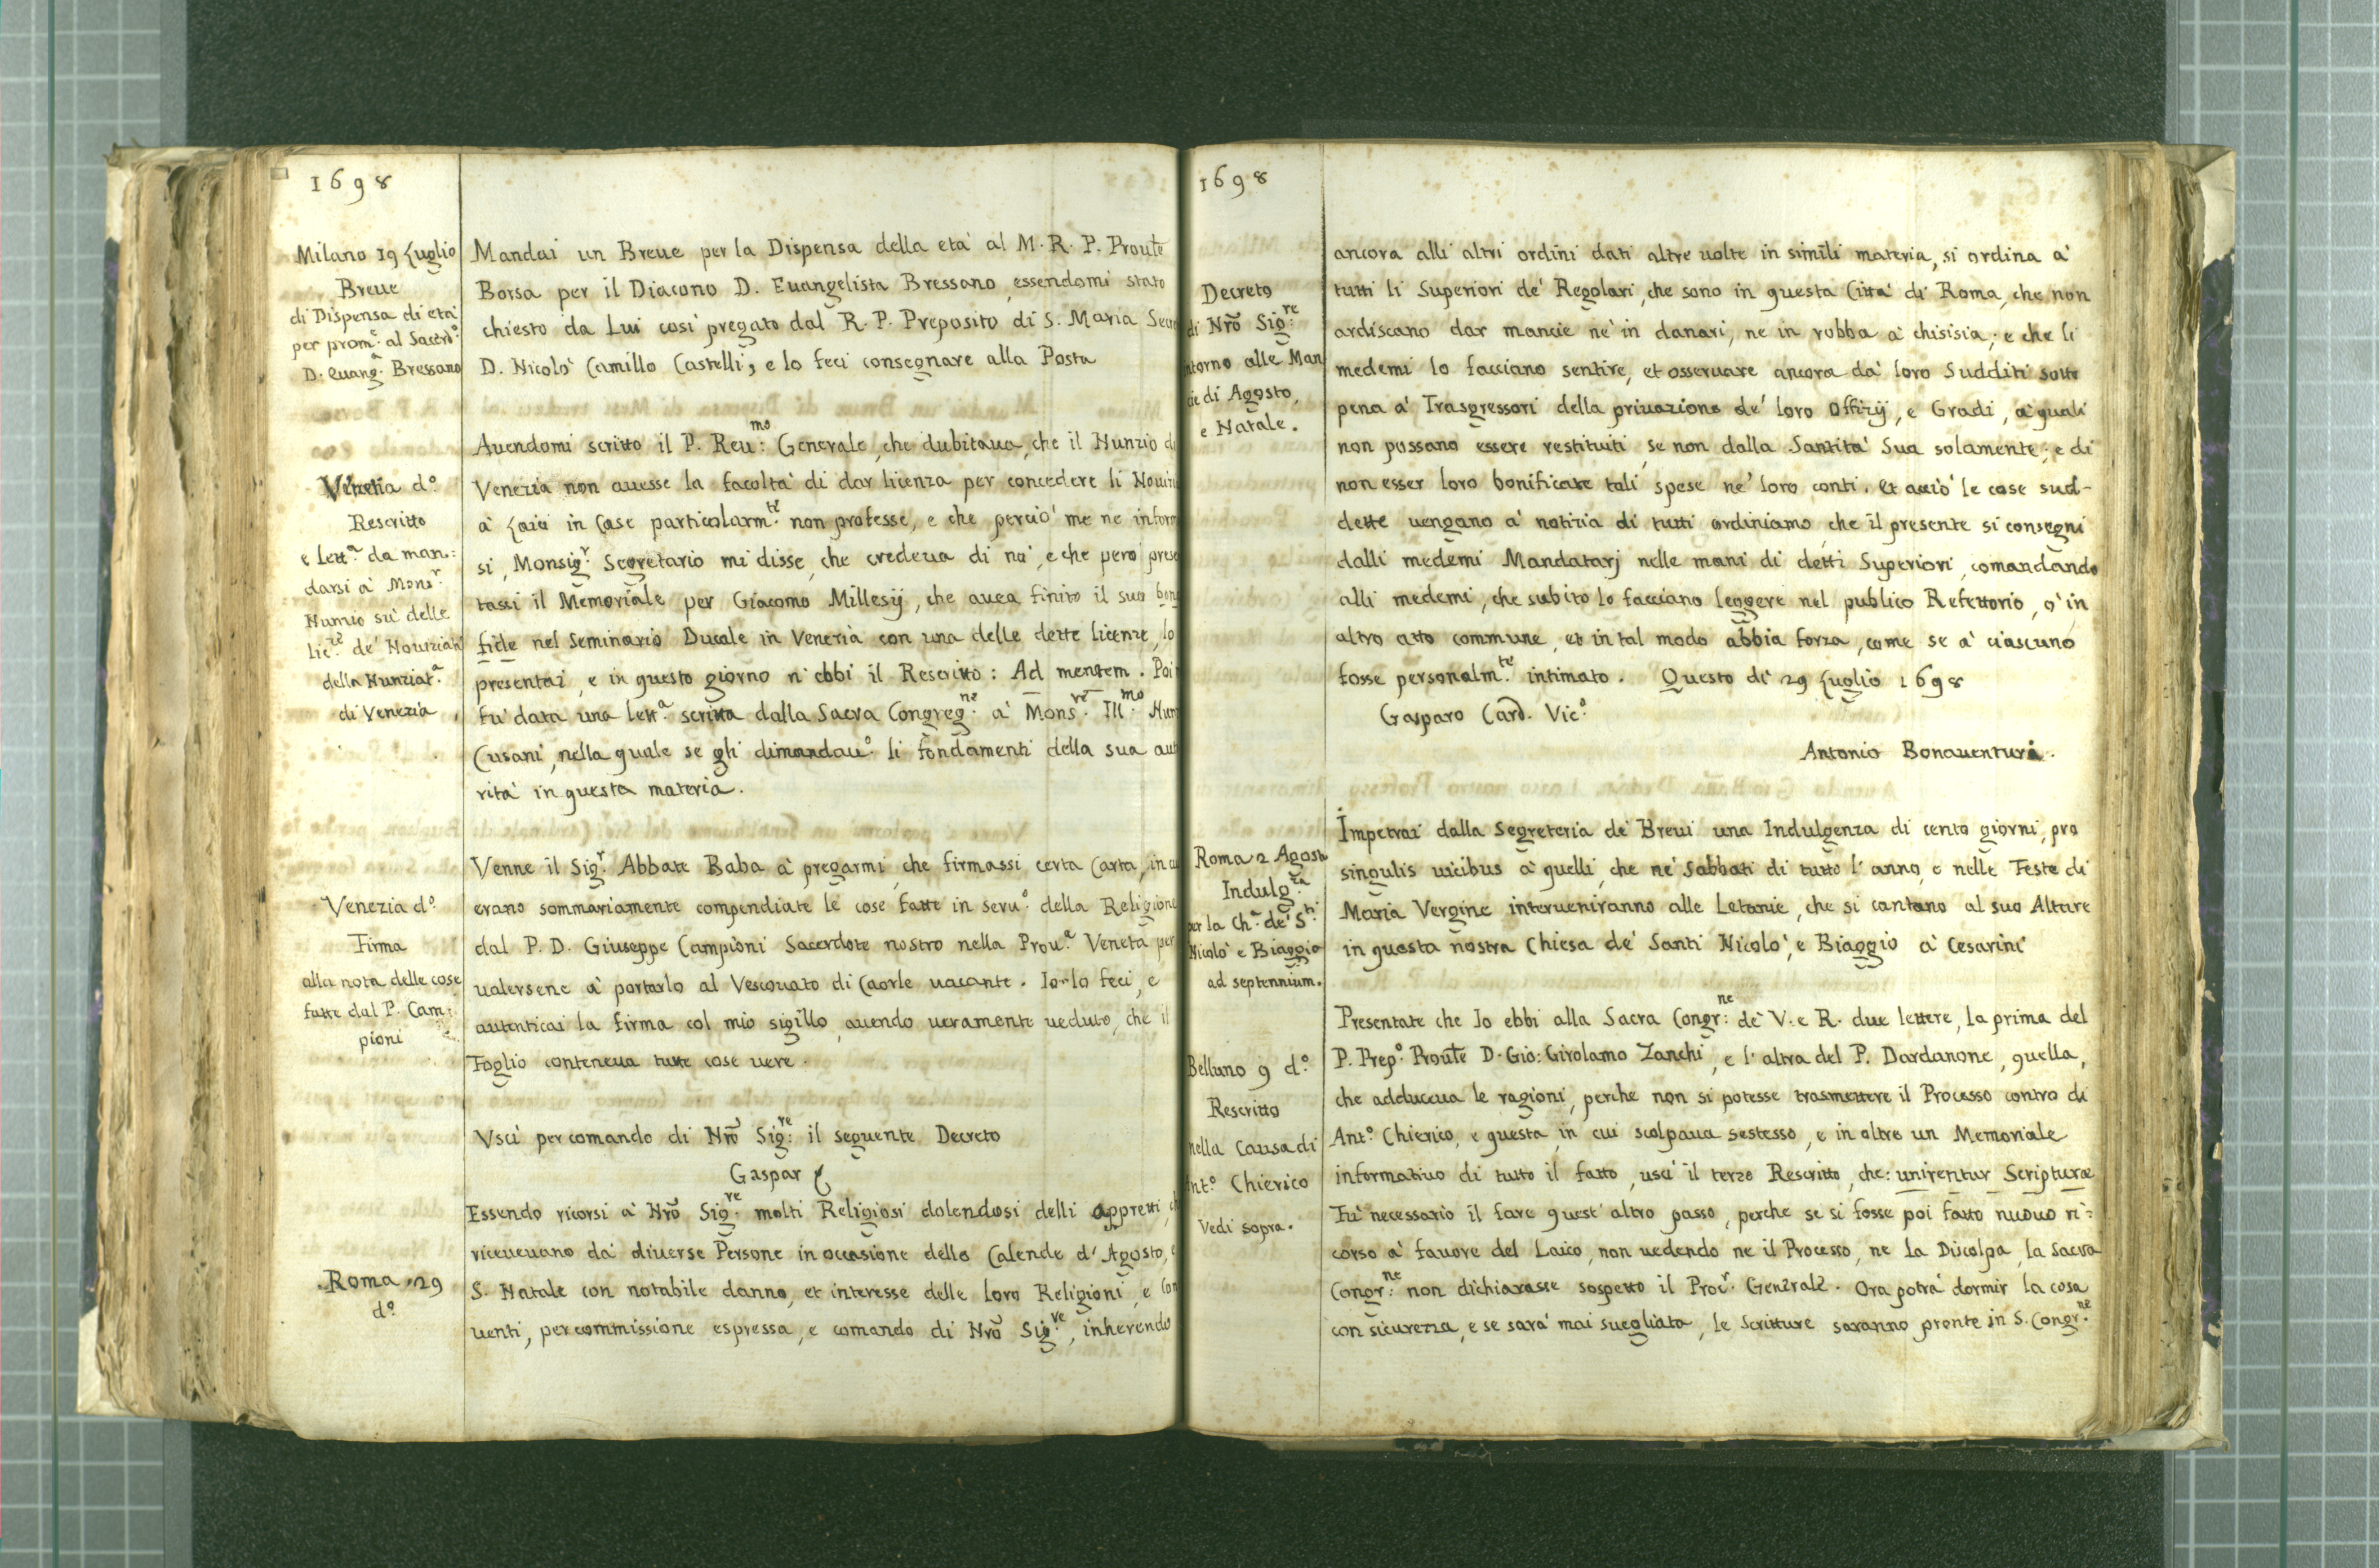 1698
Milano 19 Luglio
Breue
di Dispensa di età
per prom.e al Sacerd.o
D. Euang.a Bressano
Mandai un Breue per la Dispensa della età al M. R. P. Proułe
Borsa per il Diacono D. Euangelista Bressano, essendomi stato
chiesto da Lui così pregato dal R. P. Preposito di S. Maria
D. Nicolò Camillo Castelli, e lo feci consegnare alla Posta
Venetia d.o
Rescritto
e Lett.a da man:
darsi à Mons.r
Nuntio sù delle
lic.ze de' Nouiziati
della Nunziat.a
di Venezia
Auendomi scritto il P. Reu:mo Generale, che dubitaua, che il Nunzio
Venezia non auesse la facoltà di dar licenza per concedere li
à Laici in Case particolarm.te non professe, e che perciò me ne
si, Monsig.r Segretario mi disse, che credeua di nò, e che però
tassi il Memoriale per Giacomo Millesij, che auea finito il suo
fide nel Seminario Ducale in Venezia con una delle dette licenze, lo
presentai, e in questo giorno n'ebbi il Rescritto: Ad mentem. Poi
fù data una lett.a scritta dalla Sacra Congreg.ne à Mons.re Ill.mo
Cusani, nella quale se gli dimandau.o li fondamenti della sua
rità in questa materia.
Venezia d.o
Firma
alla nota delle cose
fatte dal P. Cam:
pioni
Venne il Sig.r Abbate Baba à pregarmi, che firmassi certa Carta, in
erano sommariamente compendiate le cose fatte in seru.o della Religione
dal P. D. Giuseppe Campioni Sacerdote nostro nella Prou.a Veneta per
ualersene à portarlo al Vescouato di Caorle uacante. Io lo feci, e
autenticai la firma col mio sigillo, auendo ueramente ueduto, che il
Foglio conteneua tutte cose uere.
Vscì per comando di Nrō Sig:re il seguente Decreto
Gaspar
Roma 29
d.o
Essendo ricorsi à Nrō Sig.re molti Religiosi dolendosi delli appretti,
riceueuano da diuerse Persone in occasione dello Calende d'Agosto,
S. Natale con notabile danno, et interesse delle loro Religioni, e
uenti, per commissione espressa, e comando di Nrō Sig.re, inherendo
1698
Decreto
di Nrō Sig:re
ntorno alle Man
cie di Agosto,
e Natale.
ancora alli altri ordini dati altre uolte in simili materia, si ordina à
tutti li Superiori de' Regolari, che sono in questa Città di Roma, che non
ardiscano dar mancie nè in danari, ne in robba à chisisia; e che li
medemi lo facciano sentire, et osseruare ancora da' loro Sudditi sotto
pena a' Trasgressori della priuazione de' loro Offizij, e Gradi, a' quali
non possano essere restituiti, se non dalla Santità Sua solamente; e di
non esser loro bonificate tali spese ne' loro conti. Et acciò le cose sud-
dette uengano à notizia di tutti ordiniamo, che il presente si consegni
dalli medemi Mandatarj nelle mani di detti Superiori, comandando
alli medemi, che subito lo facciano leggere nel publico Refettorio, o' in
altro atto commune, et in tal modo abbia forza, come se à ciascuno
fosse personalm.te intimato. Questo dì 29 Luglio 1698
Gasparo Card. Vic.o
Antonio Bonauentura.
Roma 2 Agosto
Indulg.za
per la Ch.a de' S.ti
Nicolò e Biaggio
ad septennium.
Impetrai dalla Segreteria de' Breui una Indulgenza di cento giorni, pro
singulis uicibus à quelli, che ne' Sabbati di tutto l'anno, e nelle Feste di
Maria Vergine interueniranno alle Letanie, che si cantano al suo Altare
in questa nostra Chiesa de' Santi Nicolò, e Biaggio à Cesarini
Belluno 9 d.o
Rescritto
nella Causa di
Ant.o Chierico
Vedi sopra.
Presentate che Io ebbi alla Sacra Congr:ne de' V. e R. due lettere, la prima del
P. Prep.o Proułe D. Gio: Girolamo Zanchi, e l'altra del P. Dardanone, quella,
che adduceua le ragioni, perche non si potesse trasmettere il Processo contro di
Ant.o Chierico, e questa, in cui scolpaua sestesso, e in oltre un Memoriale
informatiuo di tutto il fatto, uscì il terzo Rescritto, che: unirentur Scripturæ
Fù necessario il fare quest'altro passo, perche se si fosse poi fatto nuouo ri:
corso à fauore del Laico, non uedendo ne il Processo, ne la Discolpa, la Sacra
Congr:ne non dichiarasse sospetto il Proc.r Generale. Ora potrà dormir la cosa
con sicurezza, e se sarà mai suegliata, le Scritture saranno pronte in S. Congr.ne